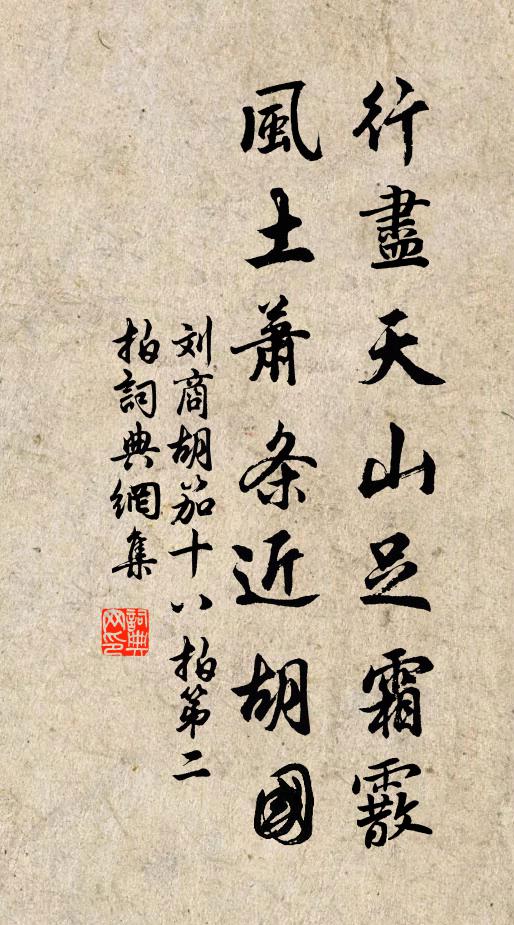 行盡天山足霜霰
風土蕭条近胡國
刘商胡笳十八拍第二
拍詞典網集
詞典
网印